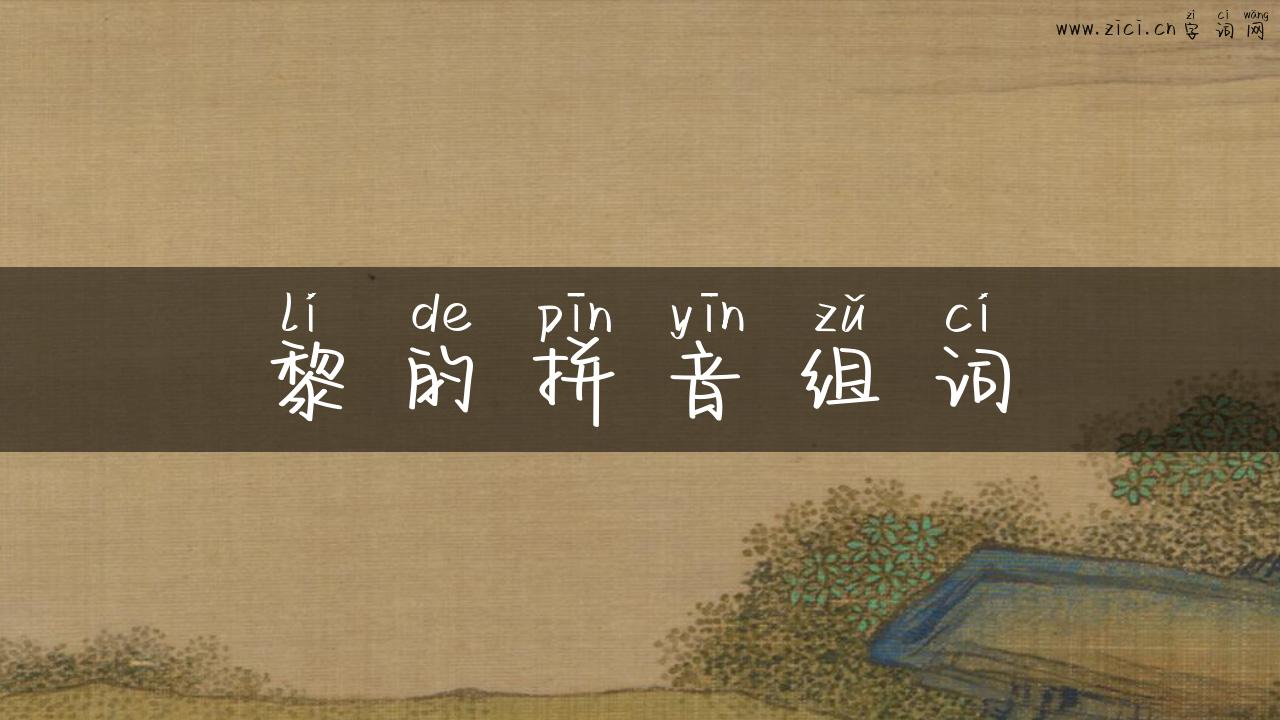 zì cí wǎng
www.zici.cn 字词网
lí de pīn yīn zǔ cí
黎的拼音组词